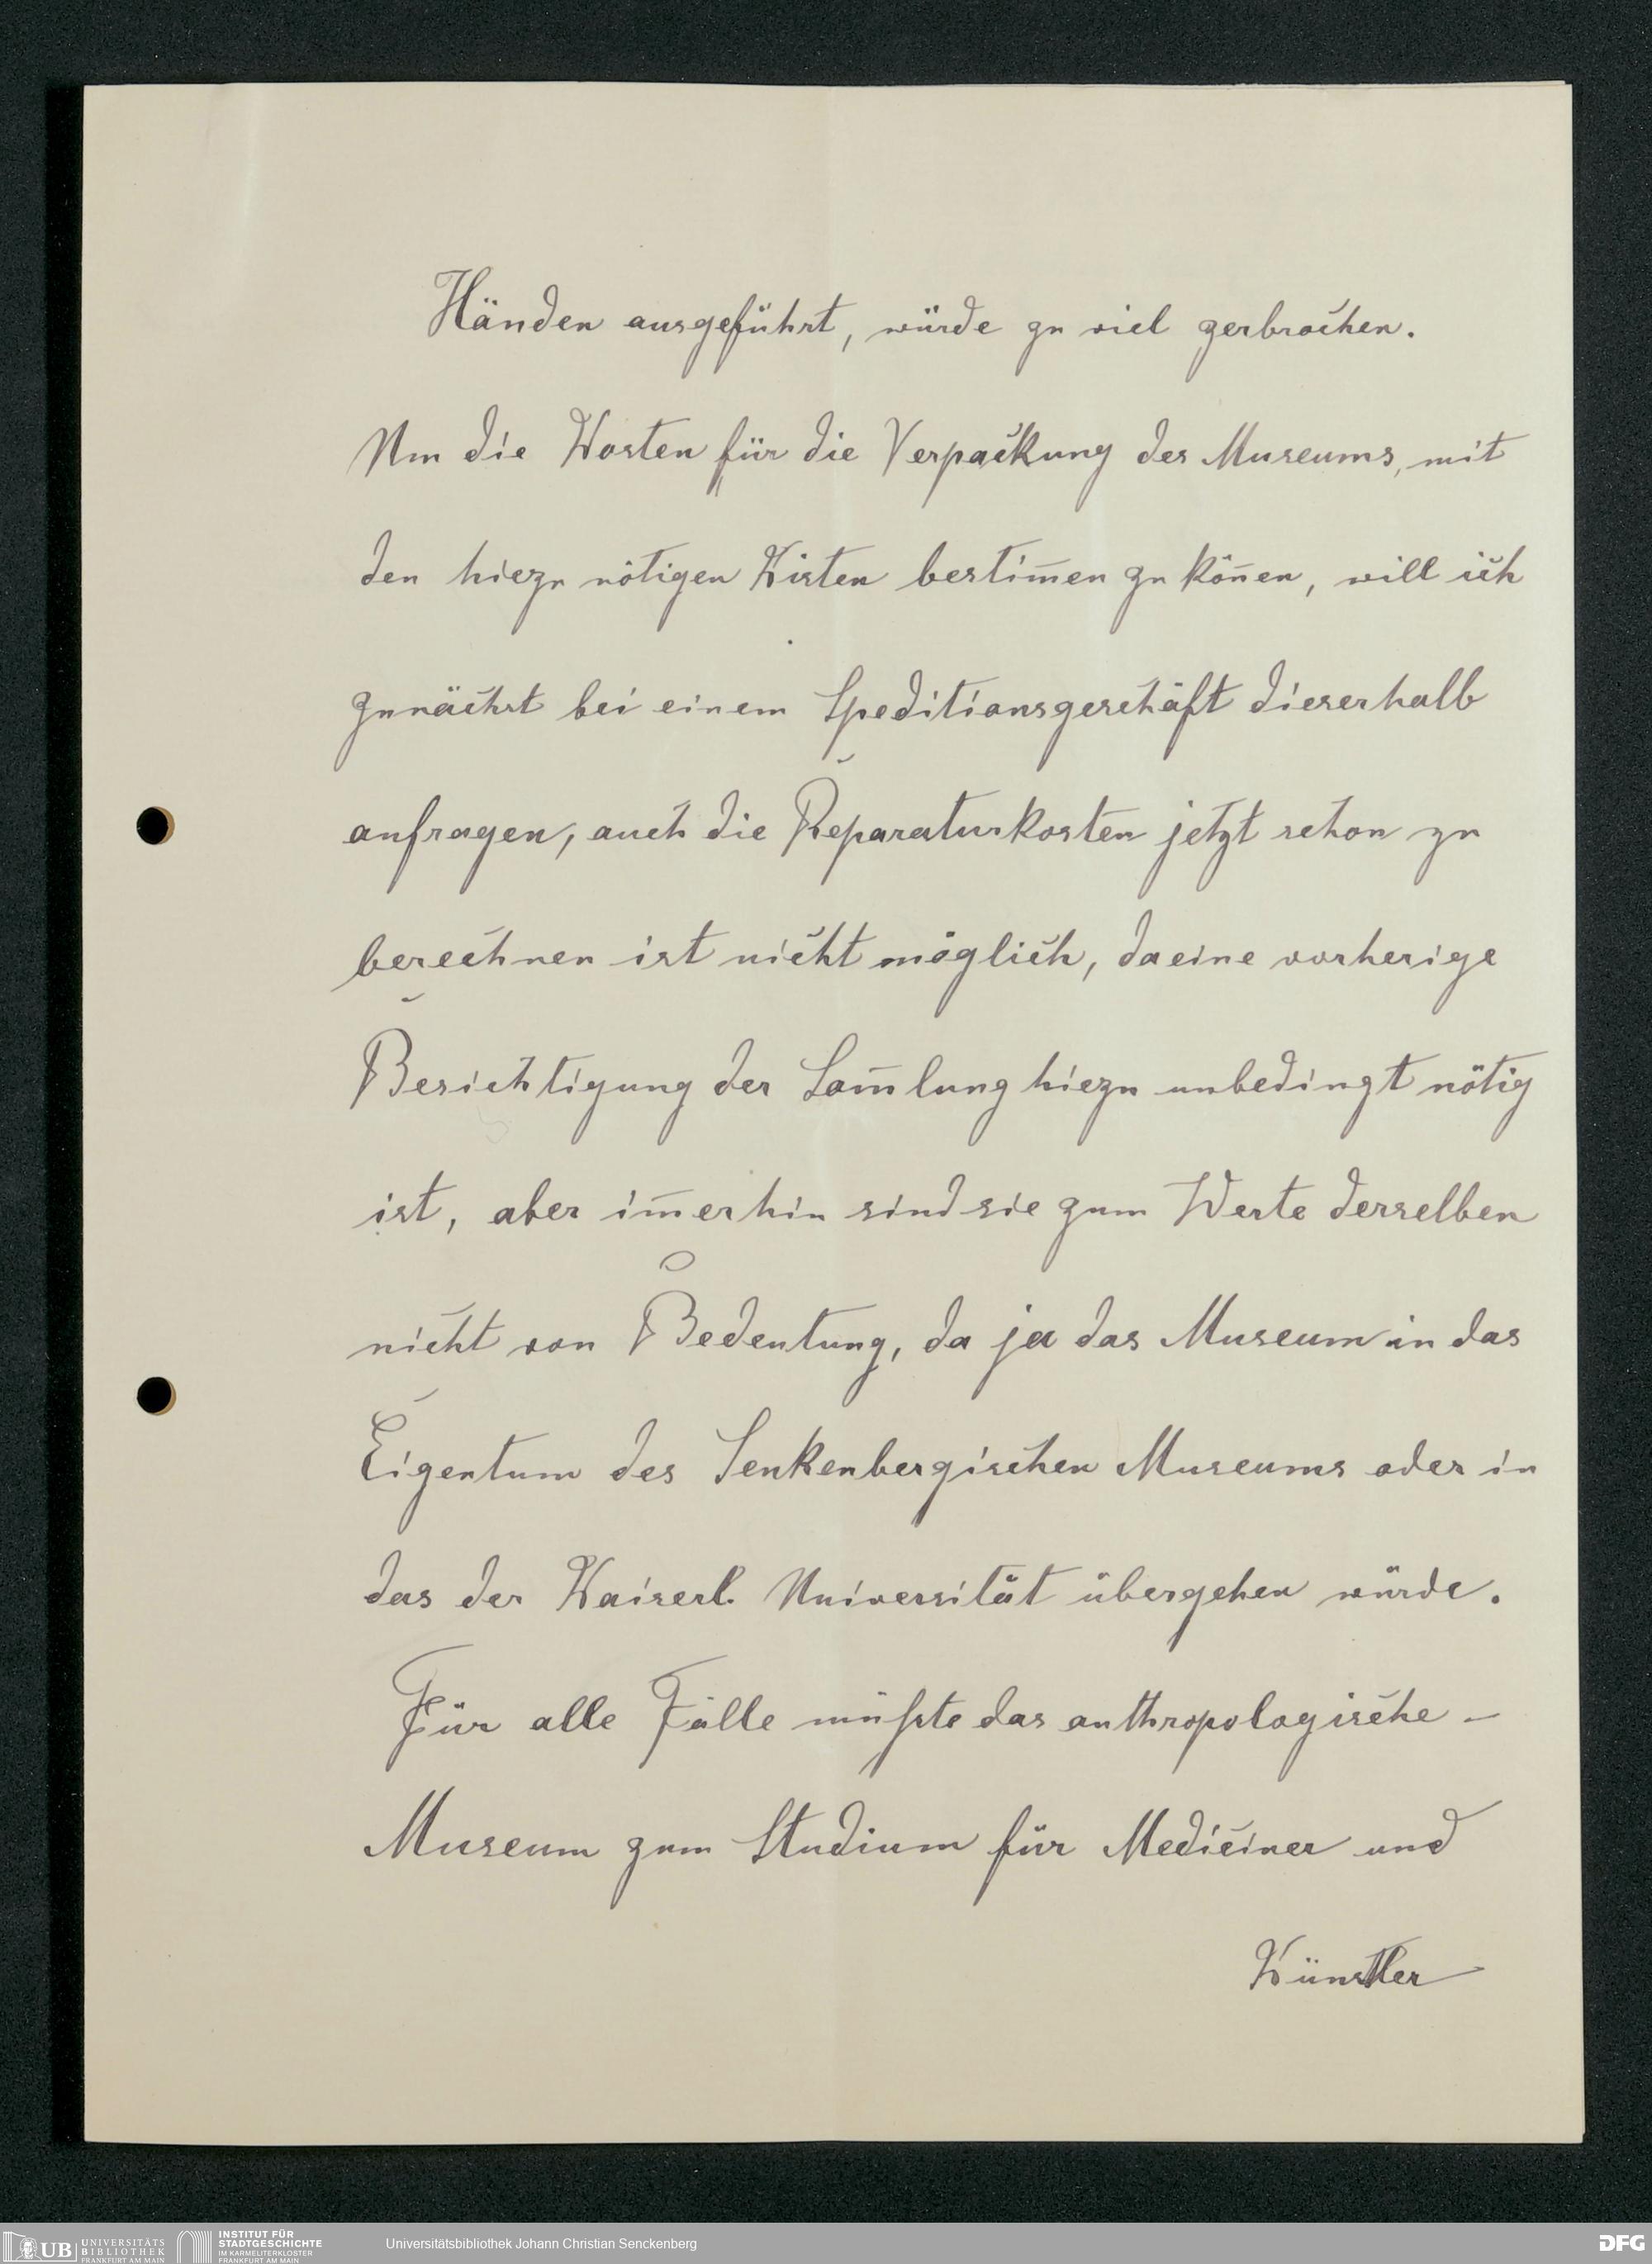 Händen ausgeführt, würde zu viel zerbrochen.
Um die Kosten für die Verpackung des Museums, mit
den hiezu nötigen Kisten bestim̄en zu kön̄en, will ich
zunächst bei einem Speditionsgeschäft dieserhalb
anfragen, auch die Reparaturkosten jetzt schon zu
berechnen ist nicht möglich, da eine vorherige
Besichtigung der Sam̄lung hiezu unbedingt nötig
ist, aber im̄erhin sind sie zum Werte derselben
nicht von Bedeutung, da ja das Museum in das
Eigentum des Senkenbergischen Museums oder in
das der Kaiserl. Universität übergehen würde.
Für alle Fälle müßte das anthropologische –
Museum zum Studium für Mediciner und
Künstler
UB UNIVERSITÄTS BIBLIOTHEK FRANKFURT AM MAIN
INSTITUT FÜR STADTGESCHICHTE IM KARMELITERKLOSTER FRANKFURT AM MAIN
Universitätsbibliothek Johann Christian Senckenberg
DFG